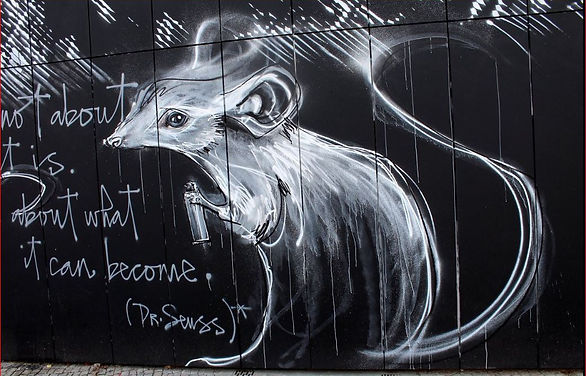 not about
t is.
about what
it can become.
(Dr. Seuss)*